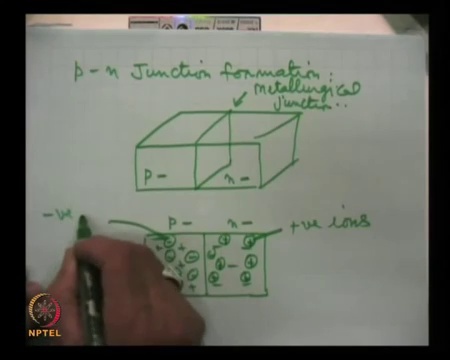 p-n Junction formation:
metallurgical
junction..
p- n-
-ve p- n- +ve ions
NPTEL